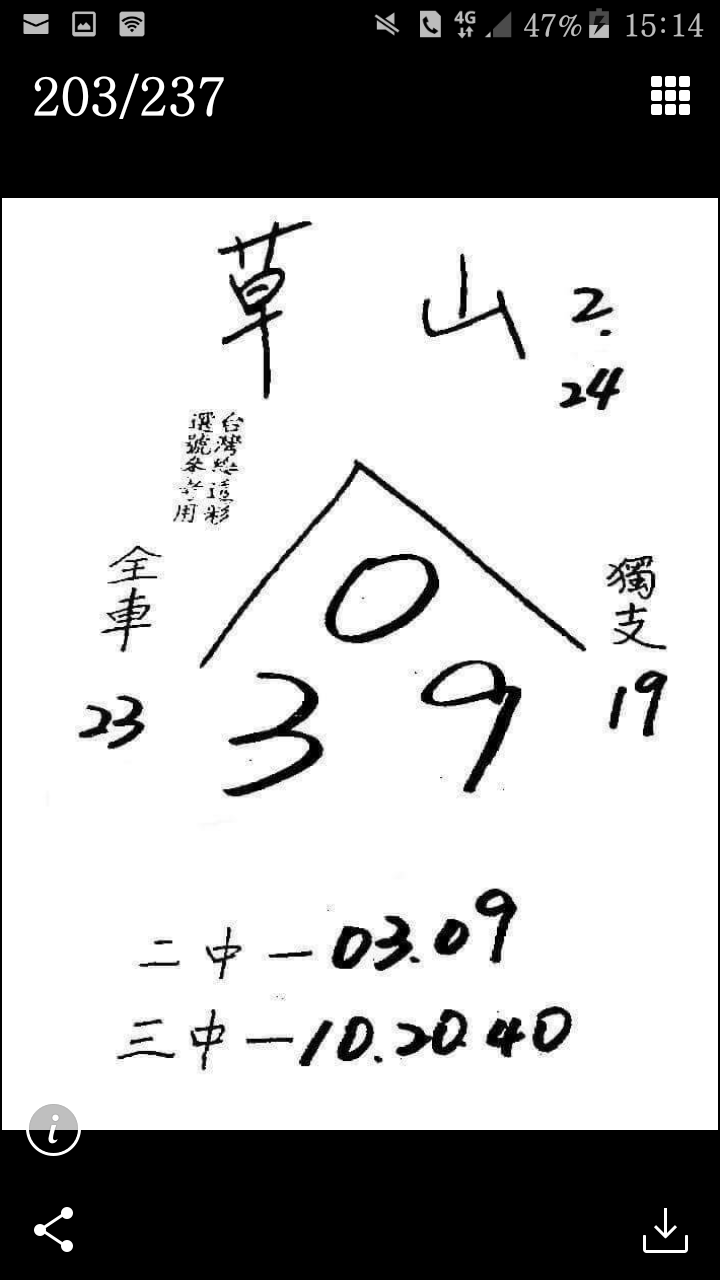 4G 47% 15:14
203/237
草 山 2.
24
台灣
選號參考用
全車
獨支
0
23
3 9
19
二中一03.09
三中一10.20.40
i